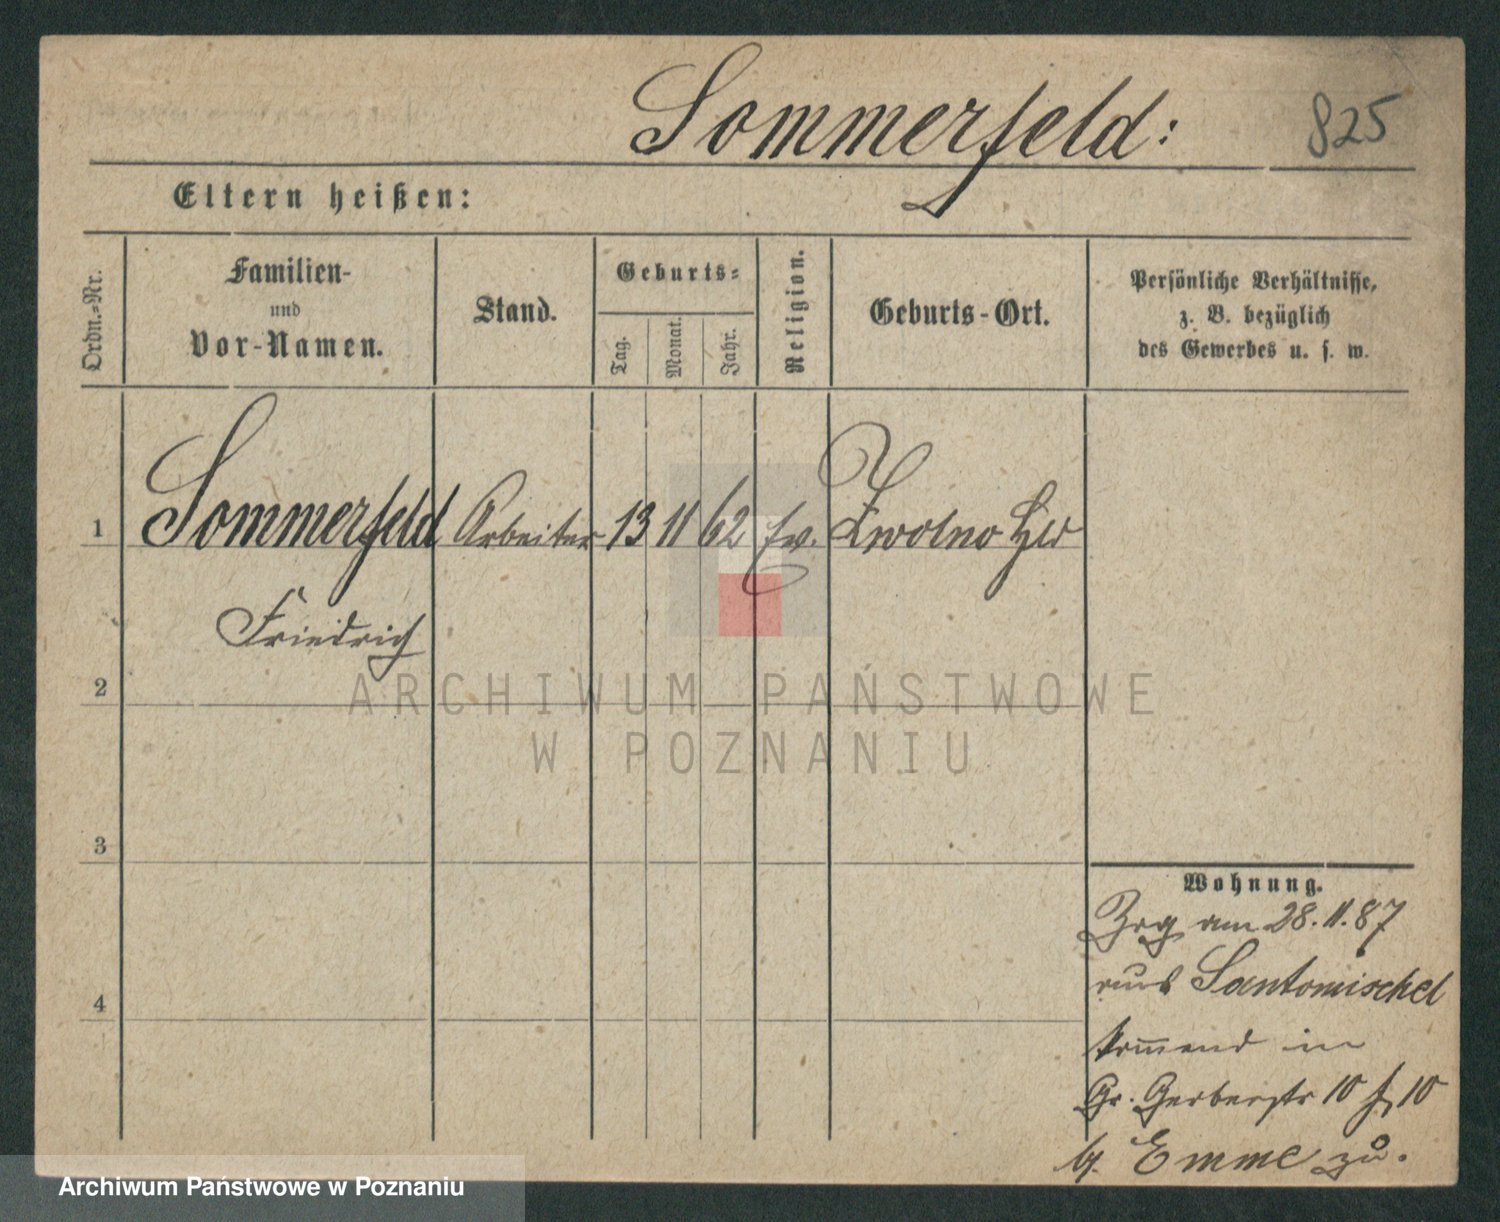 Sommerfeld: 825
Eltern heißen:
Ordn.-Nr.
Familien-
und
Vor-Namen.
Stand.
Geburts-
Tag.
Monat.
Jahr.
Religion.
Geburts-Ort.
Persönliche Verhältnisse,
z. B. bezüglich
des Gewerbes u. s. w.
1 Sommerfeld Arbeiter 13 11 62 Ev. Zwolno Hld
Friedrich
2
ARCHIWUM PAŃSTWOWE
W POZNANIU
3
Wohnung.
Zzg am 28.11.87
aus Santomischel
4
kommend in
Gr. Gerberstr 10 10
Emme zu.
Archiwum Państwowe w Poznaniu